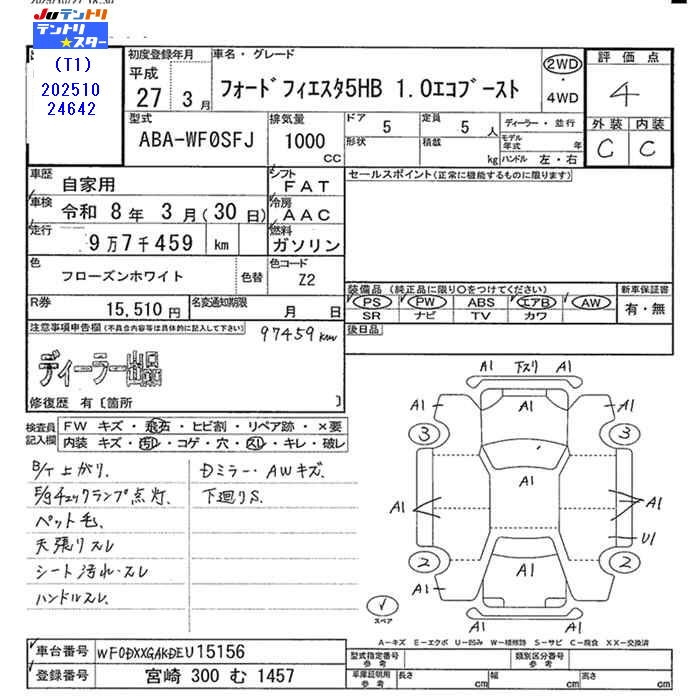 Juテントリ
テントリ★スター
(T1)
202510
24642
初度登録年月
平成
27年 3月
車名・グレード
フォード フィエスタ5HB 1.0エコブースト
2WD
・
4WD
評価点
4
外装 内装
C C
型式
ABA-WF0SFJ
排気量
1000
CC
ドア 5
定員 5 人
形状
積載 kg
ディーラー・並行
モデル年式 年
ハンドル 左・右
車歴
自家用
シフト
FAT
車検
令和 8年 3月(30日)
冷房
AAC
走行
9万7千459 km
燃料
ガソリン
色
フローズンホワイト
色替
色コード
Z2
R券
15,510円
名変通知期限
月 日
セールスポイント(正常に機能するものに限ります)
装備品(純正品に限り○をつけてください)
新車保証書
PS PW ABS エアB AW
SR ナビ TV カワ
有・無
後日品
注意事項申告欄(不具合内容等は具体的に記入して下さい)
97459km
ディーラー出品
修復歴 有〔箇所 〕
検査員記入欄
FW キズ・飛石・ヒビ割・リペア跡・×要
内装 キズ・汚レ・コゲ・穴・スレ・キレ・破レ
B/T上がり.
E/gチェックランプ点灯.
ペット毛.
天張りスレ
シート汚れ・スレ
ハンドルスレ.
Dミラー・AWキズ.
下廻りS.
A1 下スリ A1
A1 A1 A1
3 3
A1
A1 A1
U1
2 2
A1
A1
A1 A1
スペア
A-キズ E-エクボ U-凹み W-補修跡 S-サビ C-腐食 XX-交換済
車台番号
WF0DXXGAKDEU15156
登録番号
宮崎 300 む 1457
型式指定番号
参考
類別区分番号
参考
車庫証明用
参考
長さ cm
幅 cm
高さ cm